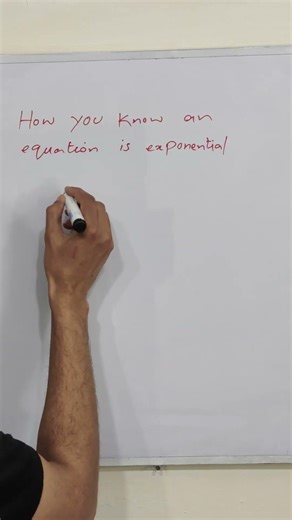 How you know an
equation is exponential